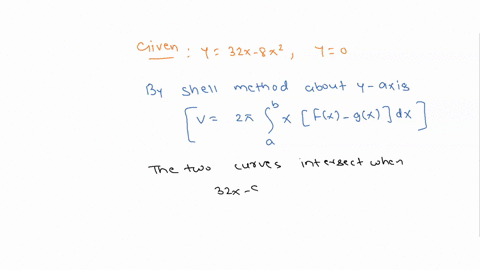 Given : Y = 32x - 8x², Y = 0
By shell method about y-axis
[ V = 2π ∫ₐᵇ x [f(x) - g(x)] dx ]
The two curves intersect when
32x -